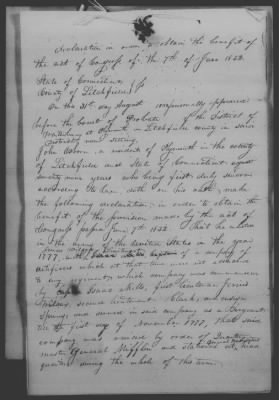 declaration in order to obtain the benefit of
the act of Congress of the 7th of June 1832
State of Connecticut
County of Litchfield
On the 31st day August personally appeared
before the Court of Probate of the District of
at Plymouth in Litchfield county in said
district now sitting
John Osborn a resident of Plymouth in the county
of Litchfield and State of Connecticut aged
seventy nine years who being first duly sworn
according to law doth on his oath, make
the following declaration, in order to obtain the
benefit of the provision made by the act of
Congress passed June 7th 1832. That he enlisted
in the army of the United States in the year
1777, with of a company of
artificers which at that time was not attached
to any regiment which company was commanded
by Isaac Mills, first lieutenant
second lieutenant Clark, an ensign
and served in said company as a Sergeant
the first day of November 1777, that said
company was raised by order of
master General Mifflin and stationed at head
quarters during the whole of this term.